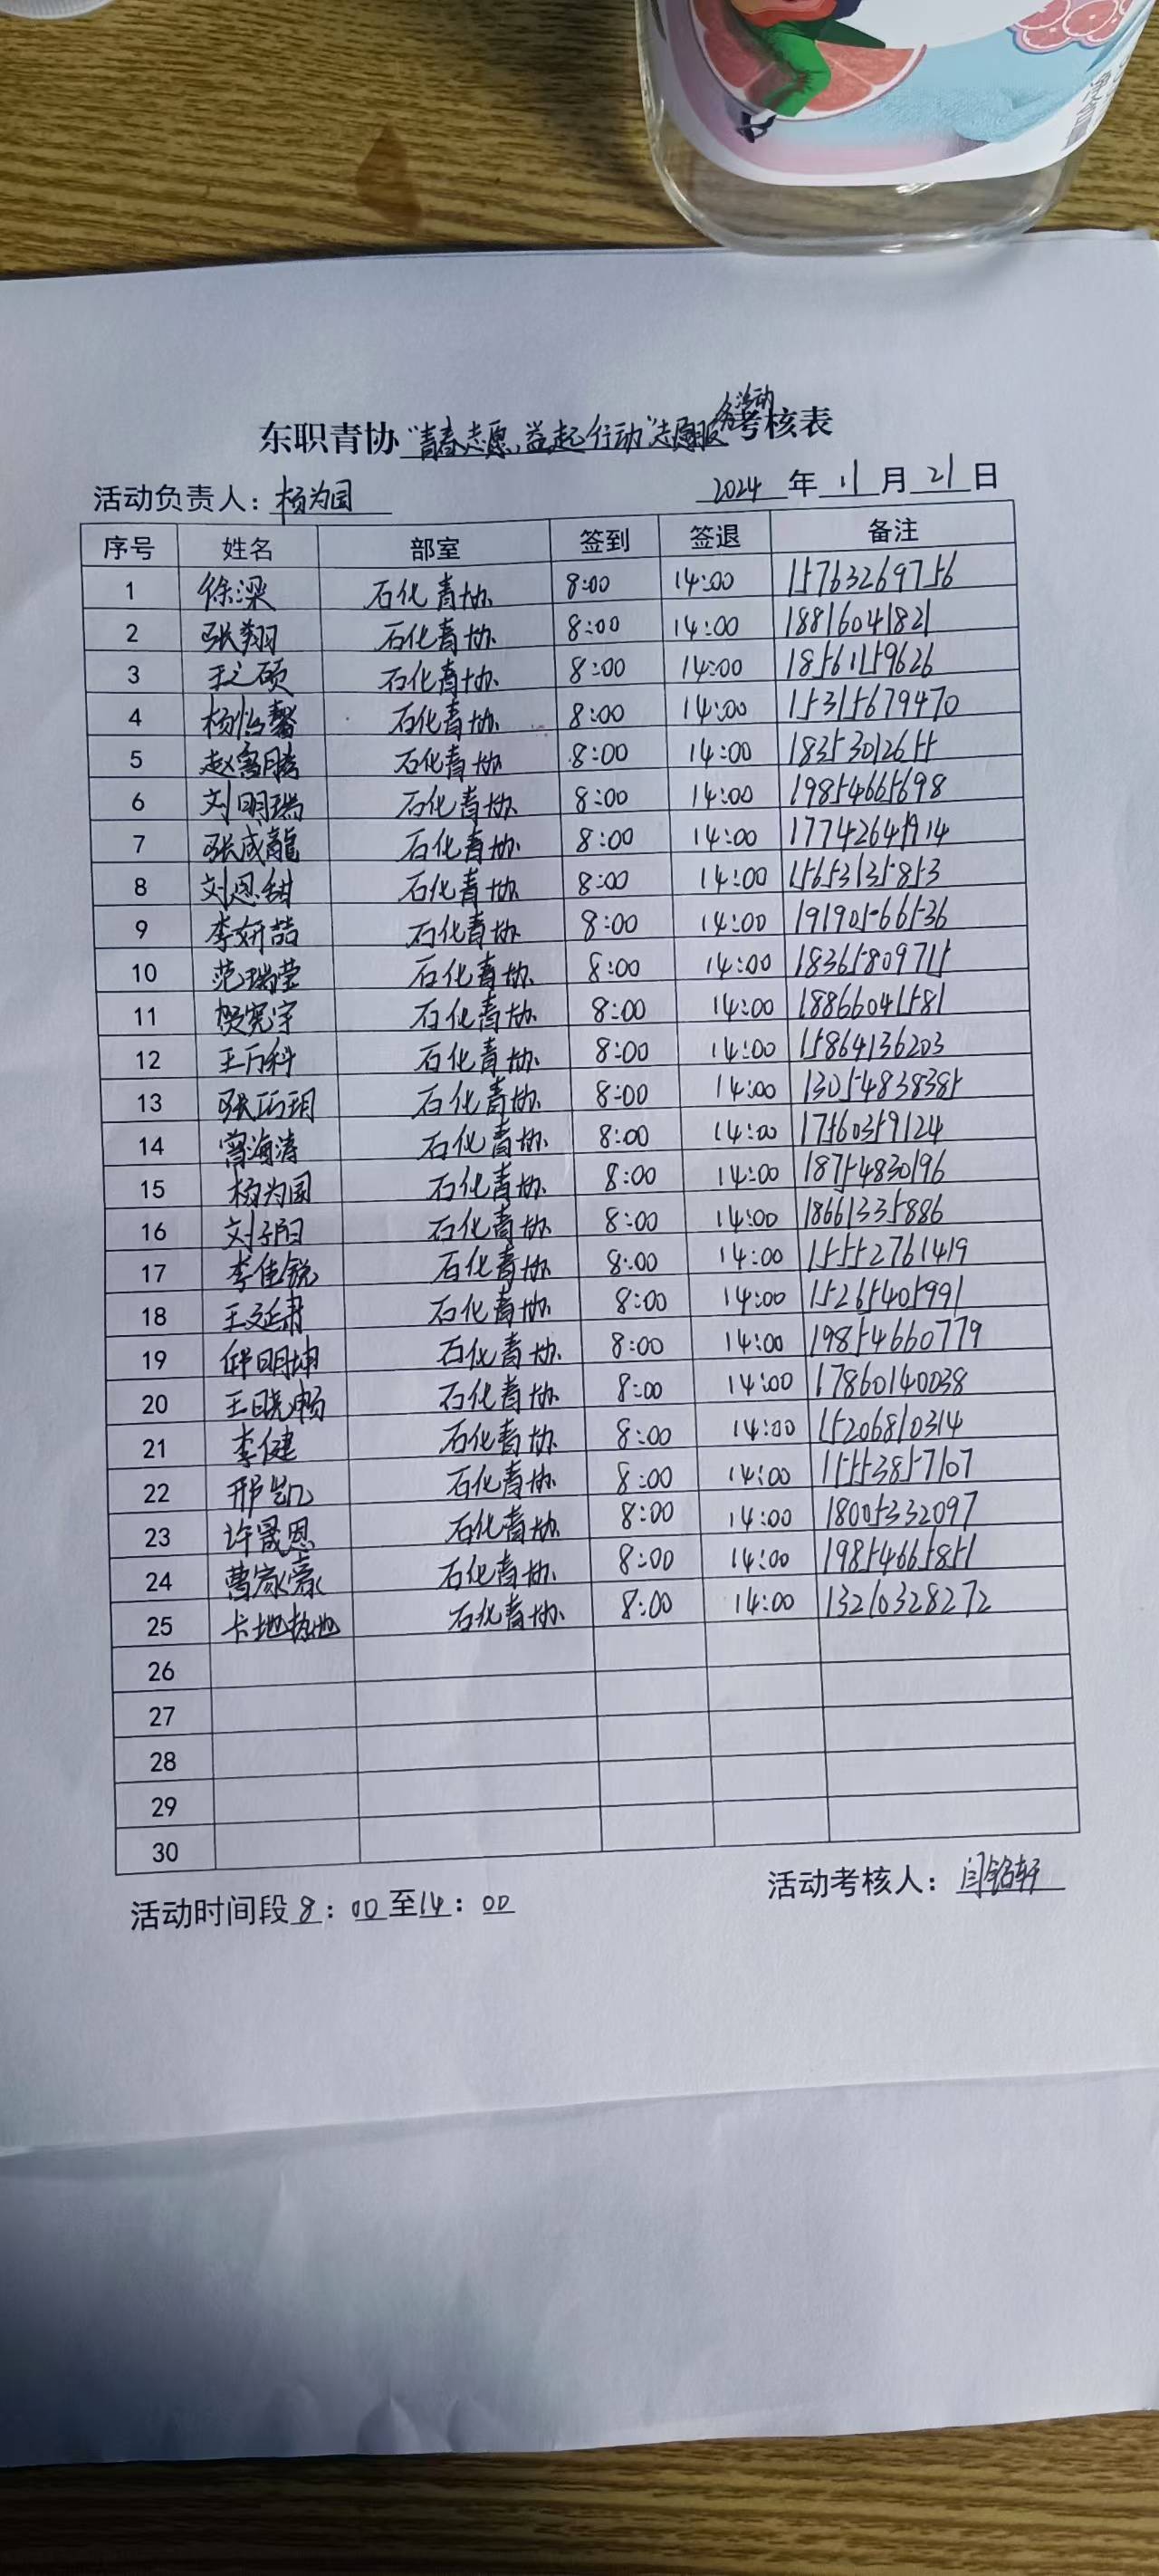 净含量
东职青协“青春志愿，益起行动”志愿服务活动考核表
活动负责人：杨为国 2024年11月21日
序号 姓名 部室 签到 签退 备注
1 徐梁 石化青协 8:00 14:00 15763269756
2 张翔 石化青协 8:00 14:00 18816041821
3 王之硕 石化青协 8:00 14:00 18561159626
4 杨怡馨 石化青协 8:00 14:00 15315679470
5 赵富腾 石化青协 8:00 14:00 18353012655
6 刘明瑞 石化青协 8:00 14:00 19854665698
7 张成龍 石化青协 8:00 14:00 17742645914
8 刘恩甜 石化青协 8:00 14:00 15653135853
9 李妍喆 石化青协 8:00 14:00 19190566536
10 范瑞莹 石化青协 8:00 14:00 18365809715
11 贺宪宇 石化青协 8:00 14:00 18866041581
12 王万科 石化青协 8:00 14:00 15864136203
13 张巧玥 石化青协 8:00 14:00 13054838385
14 曾海涛 石化青协 8:00 14:00 17560359124
15 杨为国 石化青协 8:00 14:00 18754830196
16 刘子阳 石化青协 8:00 14:00 18661335886
17 李佳锐 石化青协 8:00 14:00 15552761419
18 王延肃 石化青协 8:00 14:00 15265405991
19 明坤 石化青协 8:00 14:00 19854660779
20 王晓畅 石化青协 8:00 14:00 17860140038
21 李健 石化青协 8:00 14:00 15206810314
22 邢凯 石化青协 8:00 14:00 15553857107
23 许晟恩 石化青协 8:00 14:00 18005332097
24 曹家豪 石化青协 8:00 14:00 19854665851
25 卡地热地 石化青协 8:00 14:00 13210328272
26
27
28
29
30
活动时间段8：00至14：00 活动考核人：闫铭轩